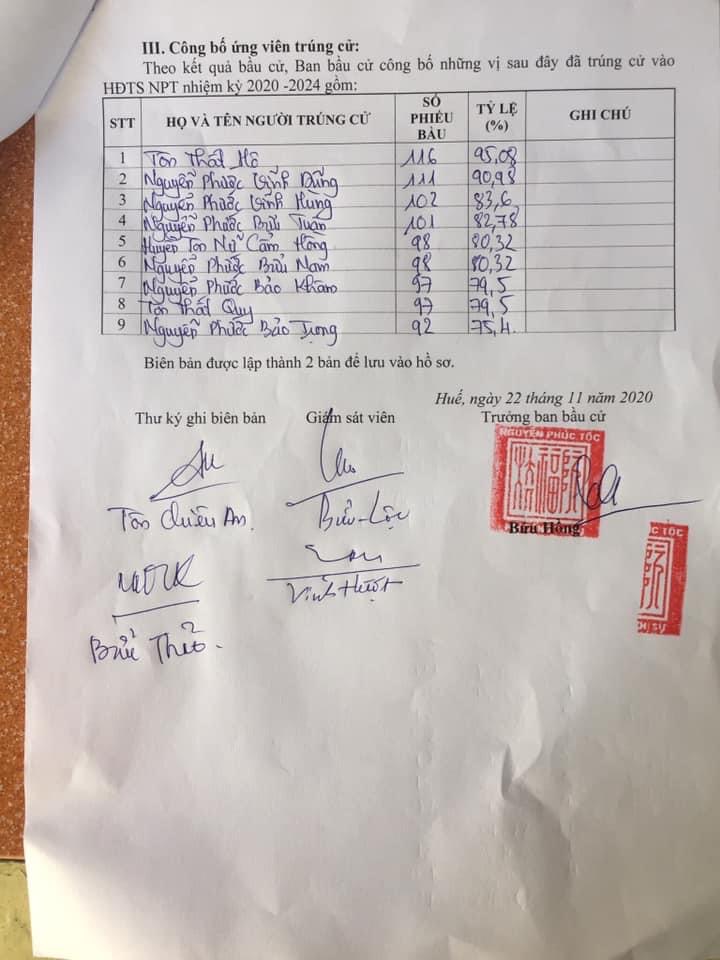 III. Công bố ứng viên trúng cử:
Theo kết quả bầu cử, Ban bầu cử công bố những vị sau đây đã trúng cử vào
HĐTS NPT nhiệm kỳ 2020 -2024 gồm:
STT HỌ VÀ TÊN NGƯỜI TRÚNG CỬ SỐ PHIẾU BẦU TỶ LỆ (%) GHI CHÚ
1 Tôn Thất Hồ 116 95,08
2 Nguyễn Phước Vĩnh Dũng 111 90,98
3 Nguyễn Phước Vĩnh Hùng 102 83,6
4 Nguyễn Phước Bửu Tuấn 101 82,78
5 Huyền Tôn Nữ Cẩm Hồng 98 80,32
6 Nguyễn Phước Bửu Nam 98 80,32
7 Nguyễn Phước Bảo Khâm 97 79,5
8 Tôn Thất Quy 97 79,5
9 Nguyễn Phước Bảo 92 75,4.
Biên bản được lập thành 2 bản để lưu vào hồ sơ.
Huế, ngày 22 tháng 11 năm 2020
Thư ký ghi biên bản Giám sát viên Trưởng ban bầu cử
NGUYỄN PHÚC TỘC
Tôn Chiêu An. Bửu-Lộc Bửu Hồng
Bửu Thảo.